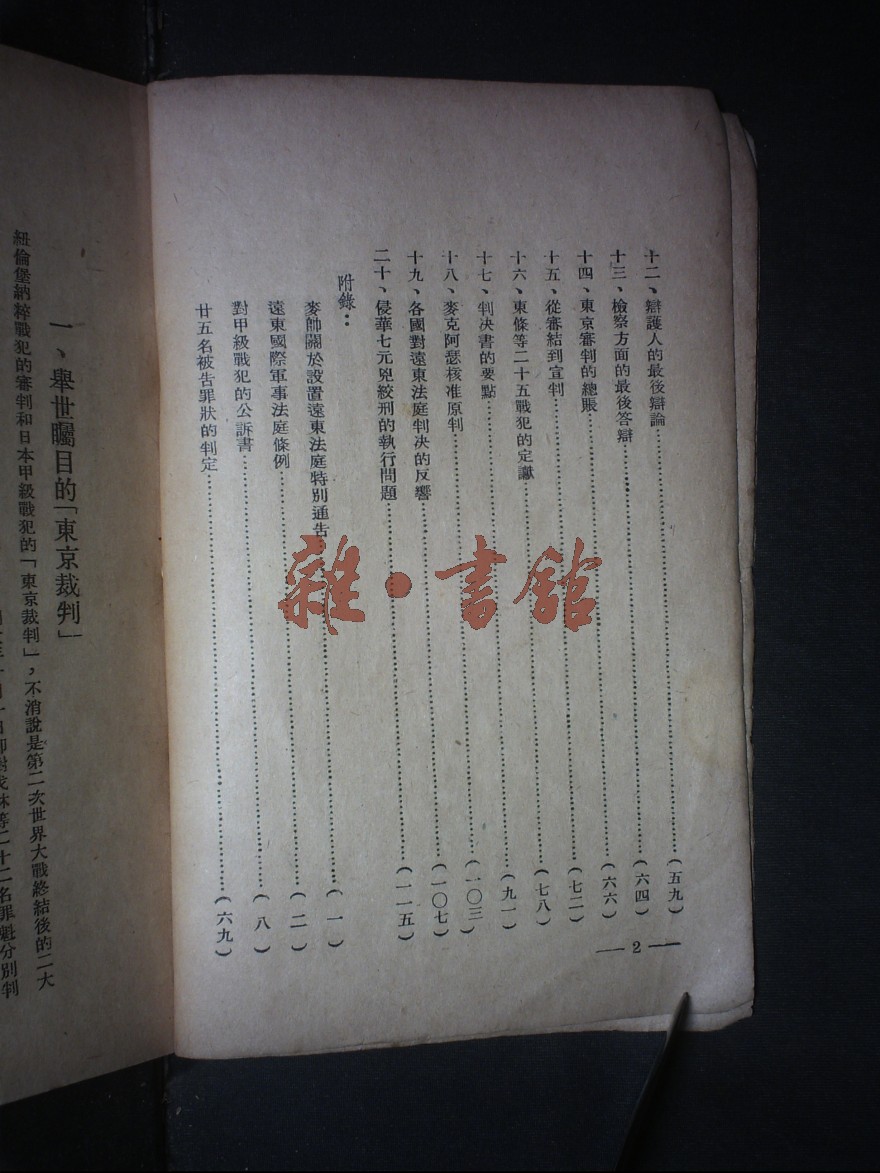 十二、辯護人的最後辯論……(五九)
十三、檢察方面的最後答辯……(六四)
十四、東京審判的總賬……(六六)
十五、從審結到宣判……(七二)
十六、東條等二十五戰犯的定讞……(七八)
十七、判決書的要點……(九一)
十八、麥克阿瑟核准原判……(一〇三)
十九、各國對遠東法庭判決的反響……(一〇七)
二十、侵華七元兇絞刑的執行問題……(一一五)
附錄：
麥帥關於設置遠東法庭特別通告……(一)
遠東國際軍事法庭條例……(二)
對甲級戰犯的公訴書……(八)
廿五名被告罪狀的判定……(六九)
— 2 —
雜·書館
一、舉世矚目的「東京裁判」
紐倫堡納粹戰犯的審判和日本甲級戰犯的「東京裁判」，不消說是第二次世界大戰終結後的二大
等二十二名罪魁分別判